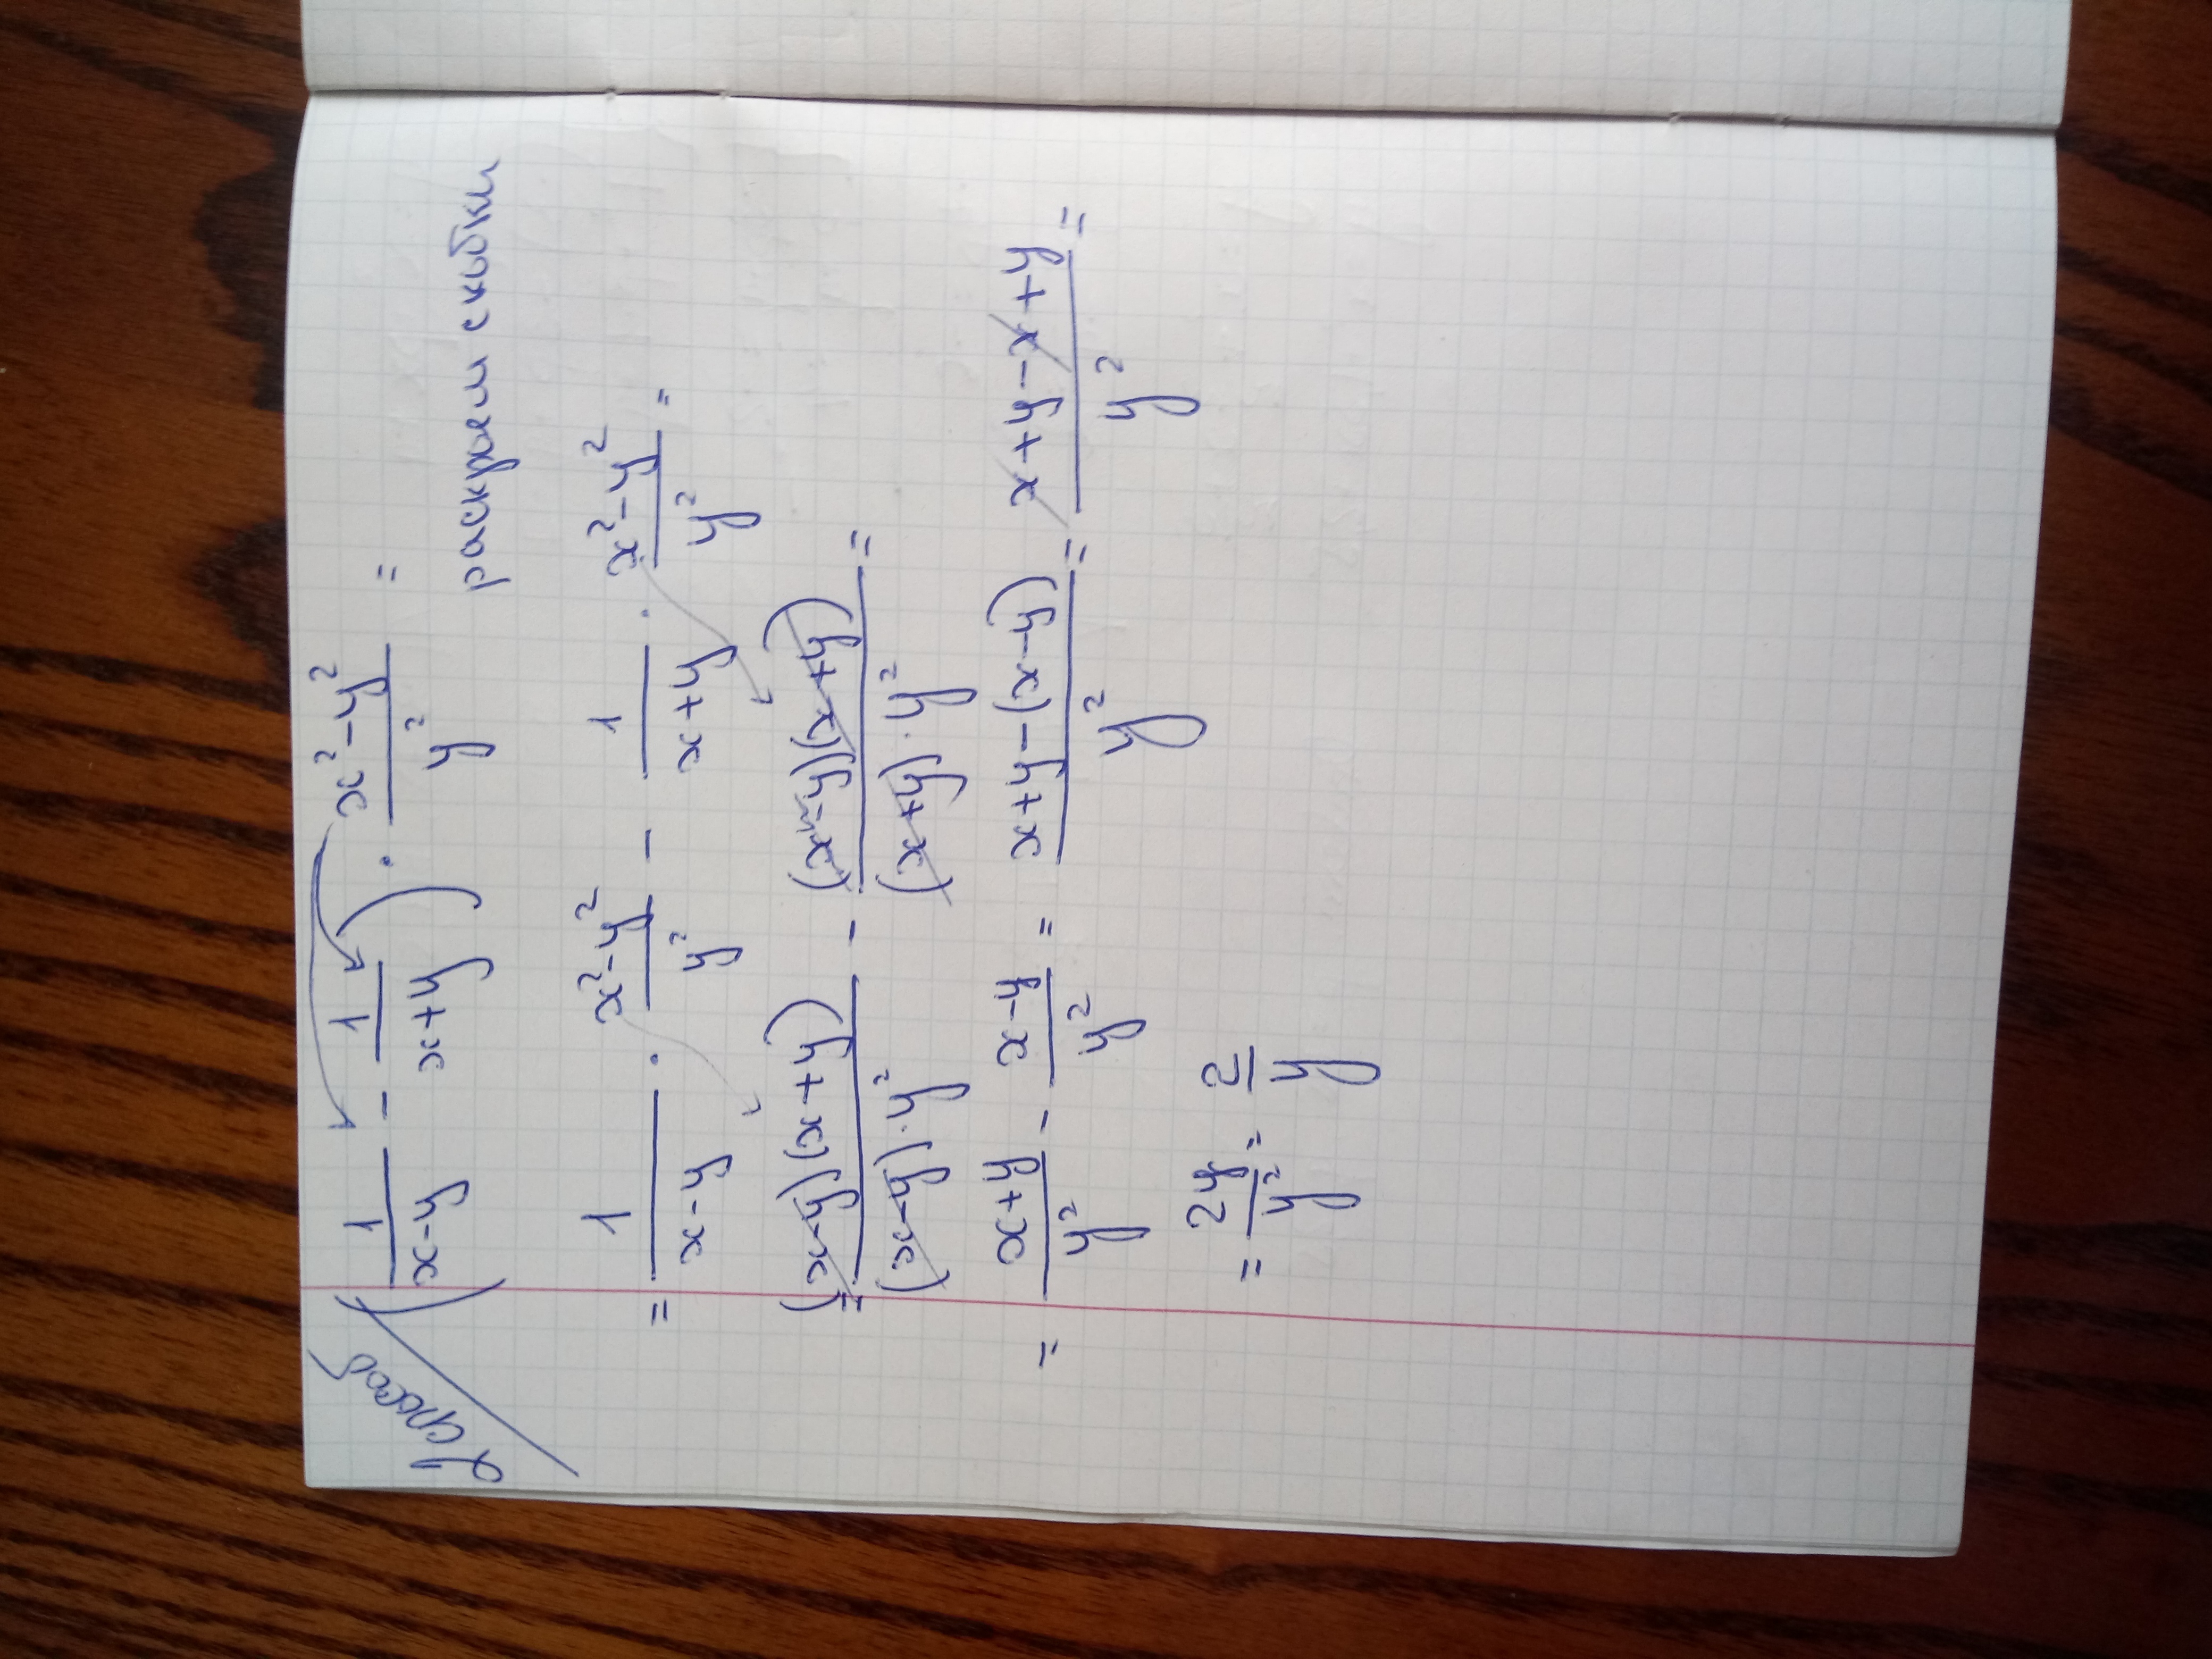 2 способ
(1/(x-y) - 1/(x+y)) · (x²-y²)/y² =
раскроем скобки
= 1/(x-y) · (x²-y²)/y² - 1/(x+y) · (x²-y²)/y² =
= (x-y)(x+y)/((x-y)·y²) - (x-y)(x+y)/((x+y)·y²) =
= (x+y)/y² - (x-y)/y² = (x+y-(x-y))/y² = (x+y-x+y)/y² =
= 2y/y² = 2/y